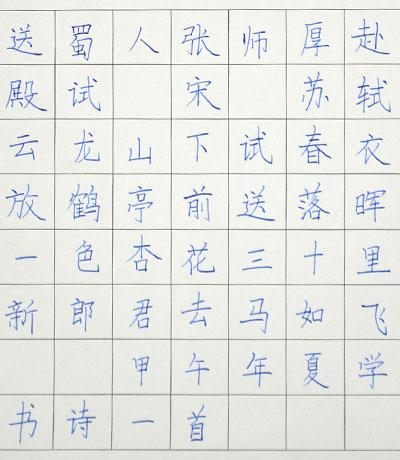 送蜀人张师厚赴
殿试 宋 苏轼
云龙山下试春衣
放鹤亭前送落晖
一色杏花三十里
新郎君去马如飞
甲午年夏学
书诗一首